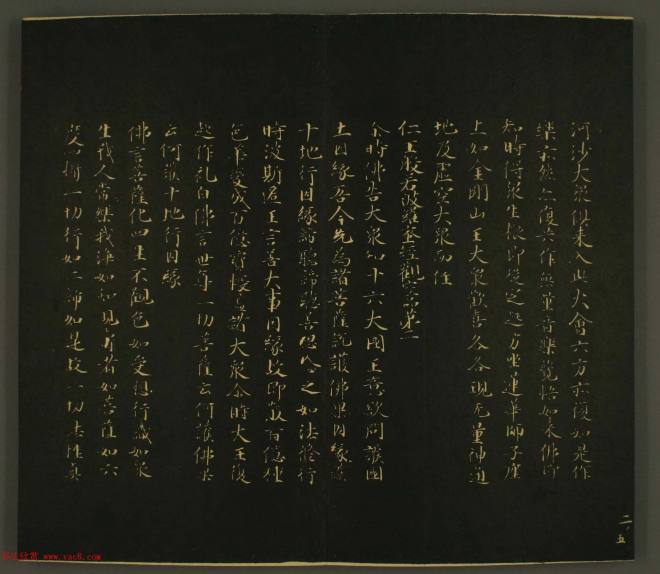 河沙大眾俱來入此大會六方亦復如是作
樂亦然亦復共作無量音樂覺悟如來佛即
知時得眾生根即從定起方坐蓮華師子座
上如金剛山王大眾歡喜各各現無量神通
地及虛空大眾而住
仁王般若波羅蜜經觀空品第二
尒時佛告大眾知十六大國王意欲問護國
土因緣吾今先為諸菩薩說護佛果因緣護
十地行因緣諦聽諦聽善思念之如法修行
時波斯匿王言善大事因緣故即散百億種
色華變成百億寶帳盖諸大眾尒時大王復
起作礼白佛言世尊一切菩薩云何護佛果
云何護十地行因緣
佛言菩薩化四生不觀色如受想行識如眾
生我人常樂我淨如知見壽者如菩薩如六
度四攝一切行如二諦如是故一切法性真
二·五
書法欣賞 www.yac8.com